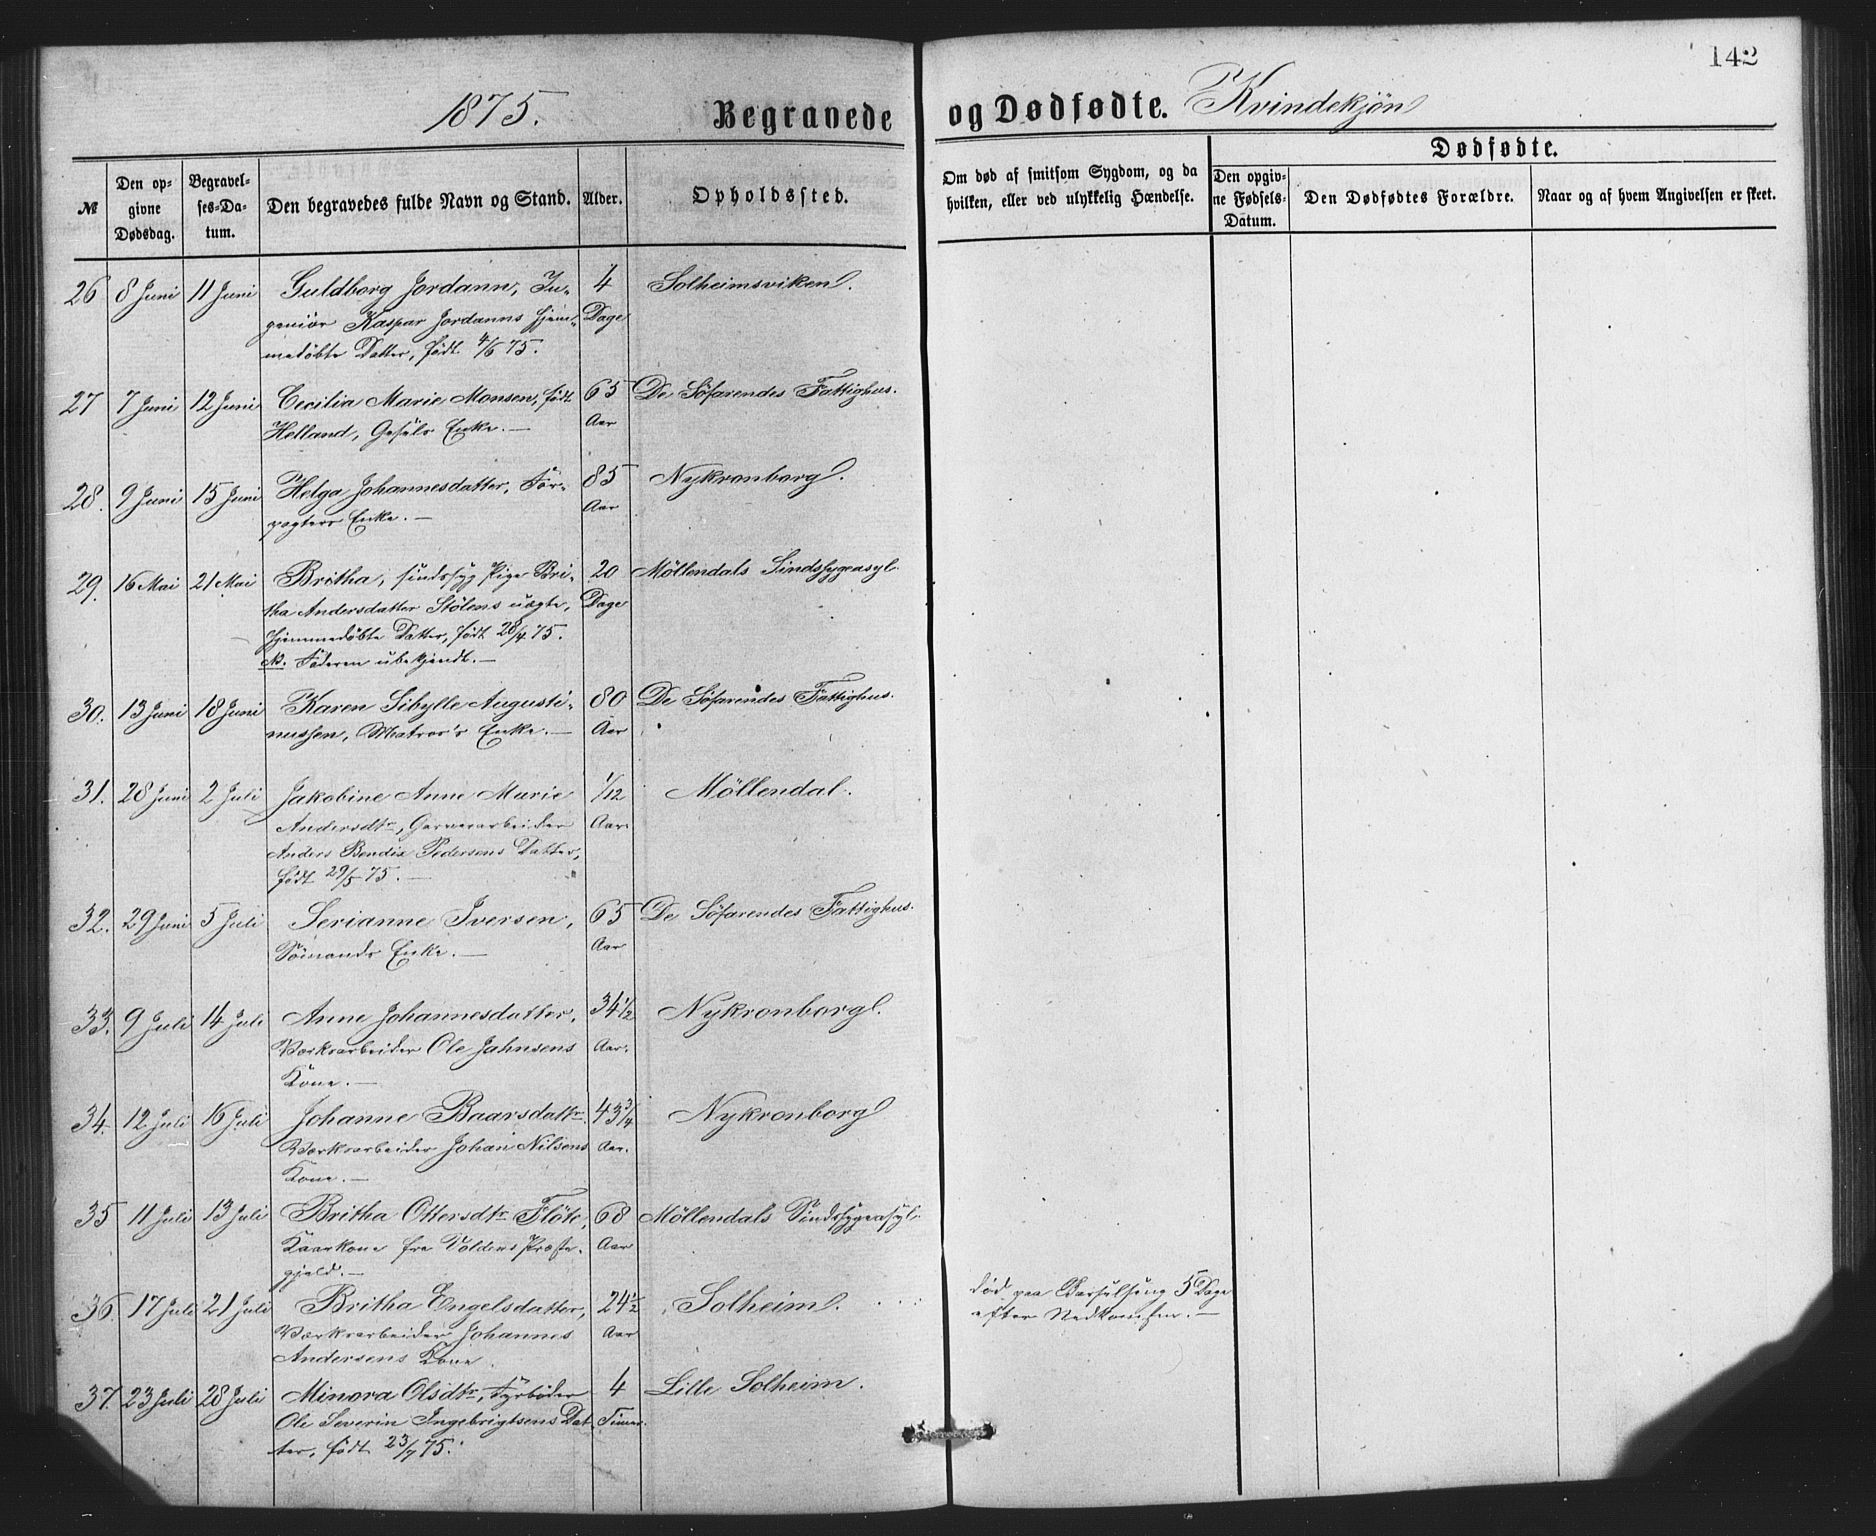 142
1875.
Begravede og Dødfødte. Kvindekjøn
№
Den opgivne Dødsdag.
Begravelses-Datum.
Den begravedes fulde Navn og Stand.
Alder.
Opholdssted.
Om død af smitsom Sygdom, og da hvilken, eller ved ulykkelig Hændelse.
Dødfødte.
Den opgivne Fødsels-Datum.
Den Dødfødtes Forældre.
Naar og af hvem Angivelsen er skeet.
26 8 Juni 11 Juni Guldborg Jordann, In- 4 Solheimsviken.
geniør Kaspar Jordanns hjem- Dage
medøbte Datter, født 4/6 75.
27 7 Juni 12 Juni Cecilia Marie Monsen, født 65 De Söfarendes Fattighus.
Helland, Gesels Enke. — Aar
28. 9 Juni 15 Juni Helga Johannesdatter, For- 85 Nykronborg.
pagters Enke. — Aar
29. 16 Mai 21 Mai Britha, sindssyg Pige Bri- 20 Möllendals Sindssygeasyl.
tha Andersdatter Stölens uægte, Dage
hjemmedöbte Datter, født 28/4 75.
NB. Faderen ubekjendt. —
30. 13 Juni 18 Juni Karen Sibylle Augusti- 80 De Söfarendes Fattighus.
nussen, Matros's Enke. — Aar
31. 28 Juni 2 Juli Jakobine Anne Marie 1/12 Möllendal.
Andersdtr, Garverarbeider Aar.
Anders Bendix Pedersens Datter,
født 29/5 75. —
32. 29 Juni 5 Juli Serianne Iversen, 65 De Söfarendes Fattighus.
Sömands Enke. — Aar
33. 9 Juli 14 Juli Anne Johannesdatter, 34 1/2 Nykronborg.
Værksarbeider Ole Jahnsens Aar.
Kone. —
34. 12 Juli 16 Juli Johanne Baarsdattr 43 3/4 Nykronborg
Værksarbeider Johan Nilsens Aar.
Kone. —
35 11 Juli 13 Juli Britha Ottersdtr Flöte, 68 Möllendals Sindssygeasyl.
Kaarkone fra Voldens Præste- Aar
gjeld. —
36. 17 Juli 21 Juli Britha Engelsdatter, 24 1/2 Solheim. død paa Barselseng 5 Dage
Værksarbeider Johannes Aar efter Nedkomsten. —
Andersens Kone.
37. 23 Juli 28 Juli Minora Olsdtr, Fyrböder 4 Lille Solheim.
Ole Severin Ingebrigtsens Dat- Timer.
ter, født 23/7 75.